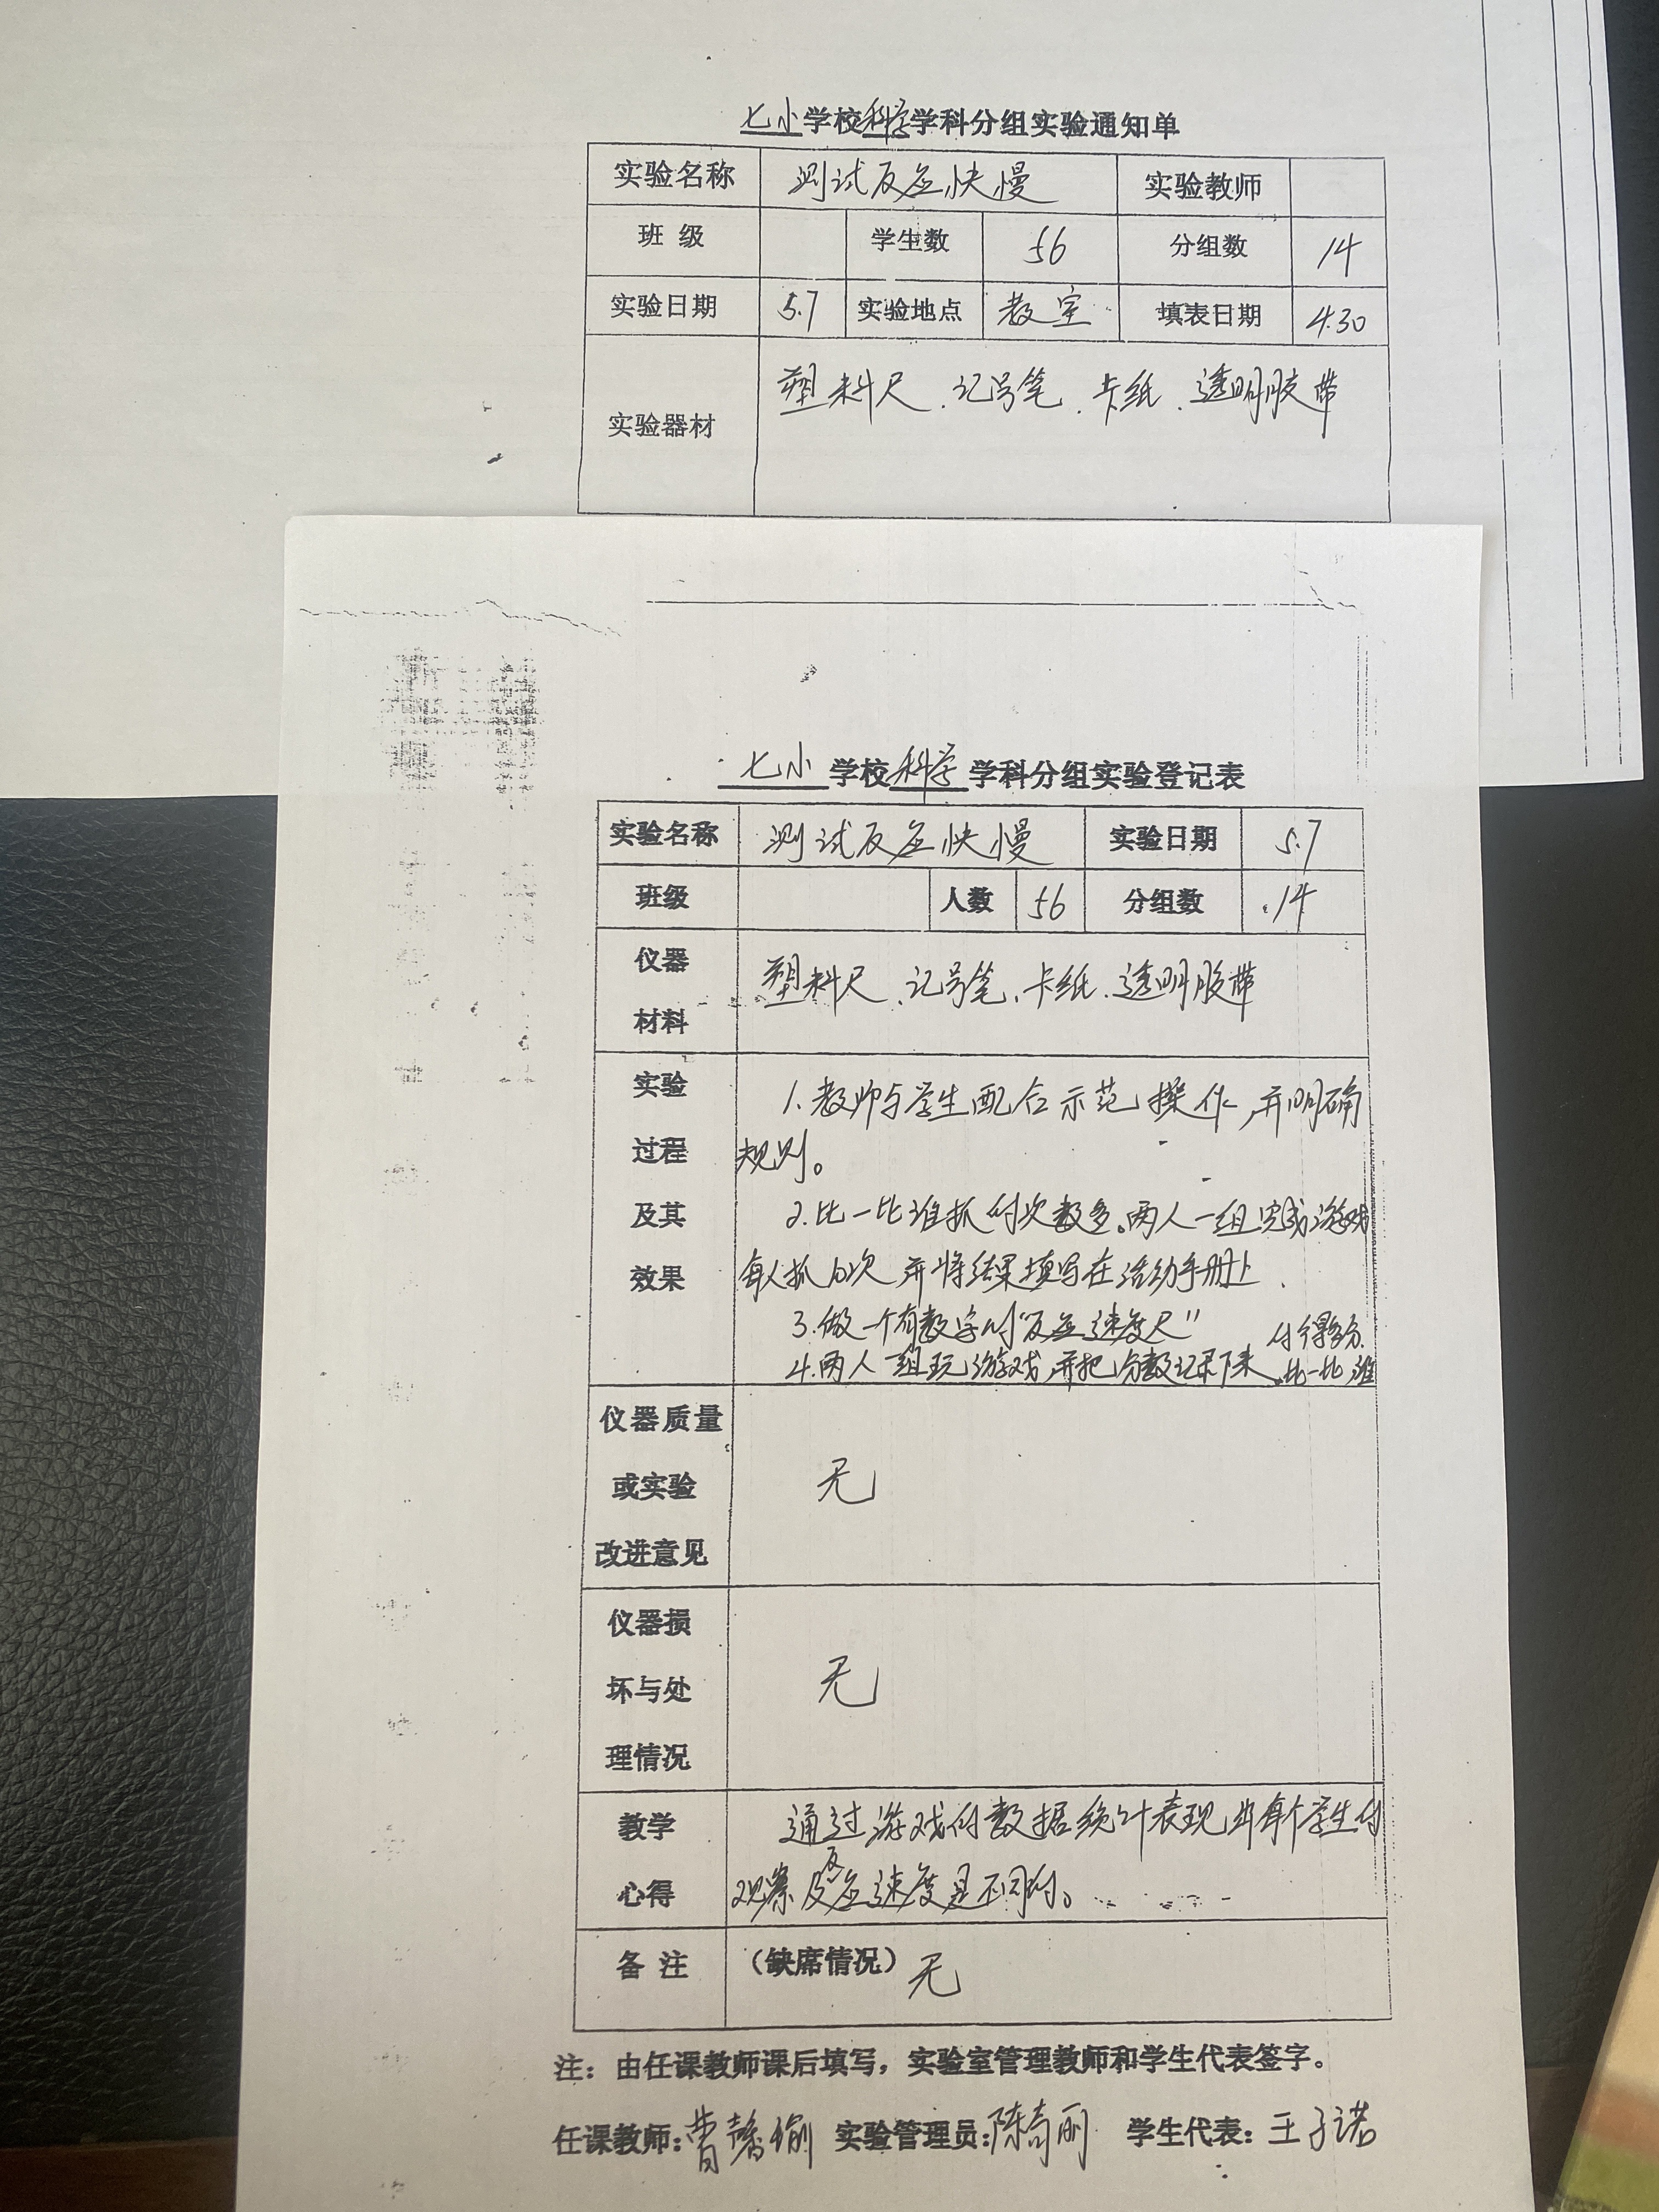 七小学校科学学科分组实验通知单
实验名称 测试反应快慢 实验教师
班 级 学生数 56 分组数 14
实验日期 5.7 实验地点 教室 填表日期 4.30
实验器材 塑料尺、记号笔、卡纸、透明胶带
七小学校科学学科分组实验登记表
实验名称 测试反应快慢 实验日期 5.7
班级 人数 56 分组数 14
仪器
材料
塑料尺、记号笔、卡纸、透明胶带
实验
过程
及其
效果
1.教师与学生配合示范操作,并明确
规则。
2.比一比谁抓的次数多。两人一组完成游戏
每人抓10次 并将结果填写在活动手册上
3.做一个有数字的“反应速度尺”
4.两人一组玩游戏,并把分数记录下来.比一比,谁
的得分多.
仪器质量
或实验
改进意见
无
仪器损
坏与处
理情况
无
教学
心得
通过游戏的数据统计表现出每个学生的
观察反应速度是不同的。
备 注 (缺席情况) 无
注:由任课教师课后填写,实验室管理教师和学生代表签字。
任课教师:曹馨瑜 实验管理员:陈奇丽 学生代表:王子诺